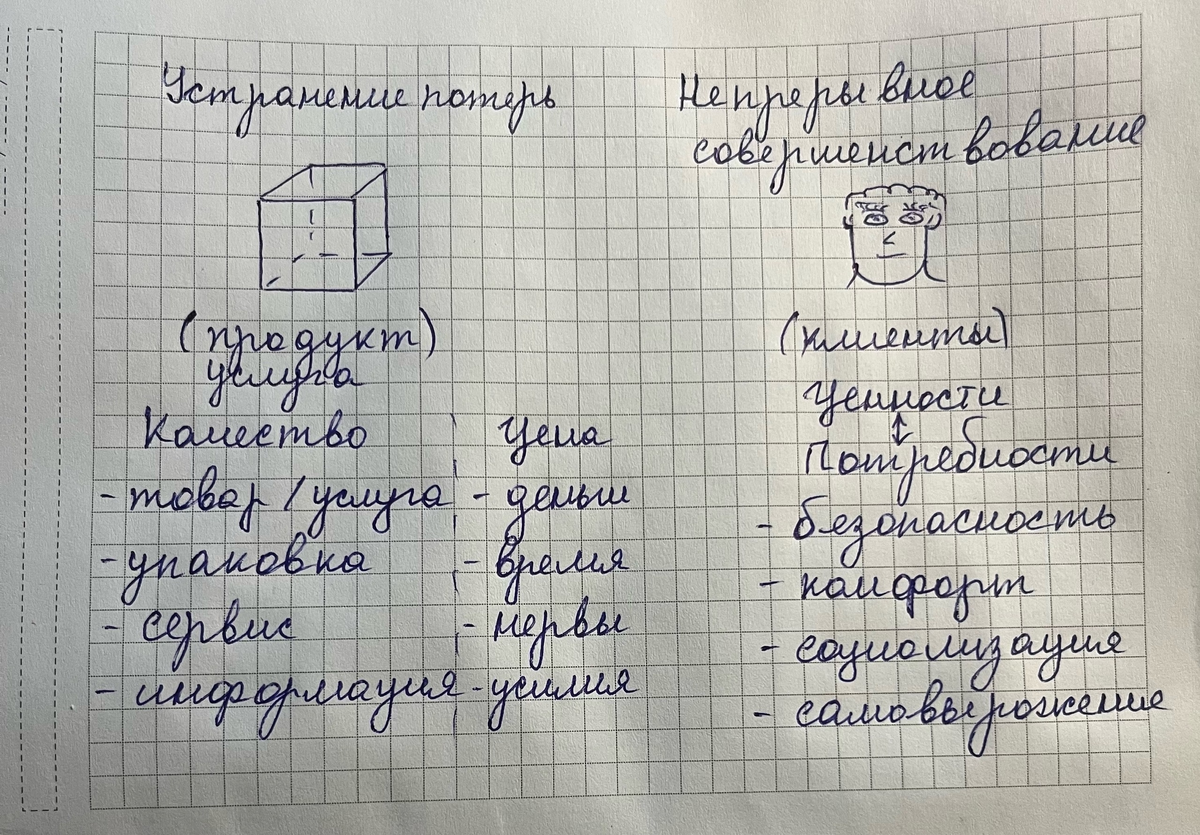 Устранение потерь
(продукт)
услуга
Качество
- товар / услуга
- упаковка
- сервис
- информация
Цена
- деньги
- время
- нервы
- усилия
Непрерывное
совершенствование
(клиенты)
Ценности
Потребности
- безопасность
- комфорт
- социализация
- самовырожение